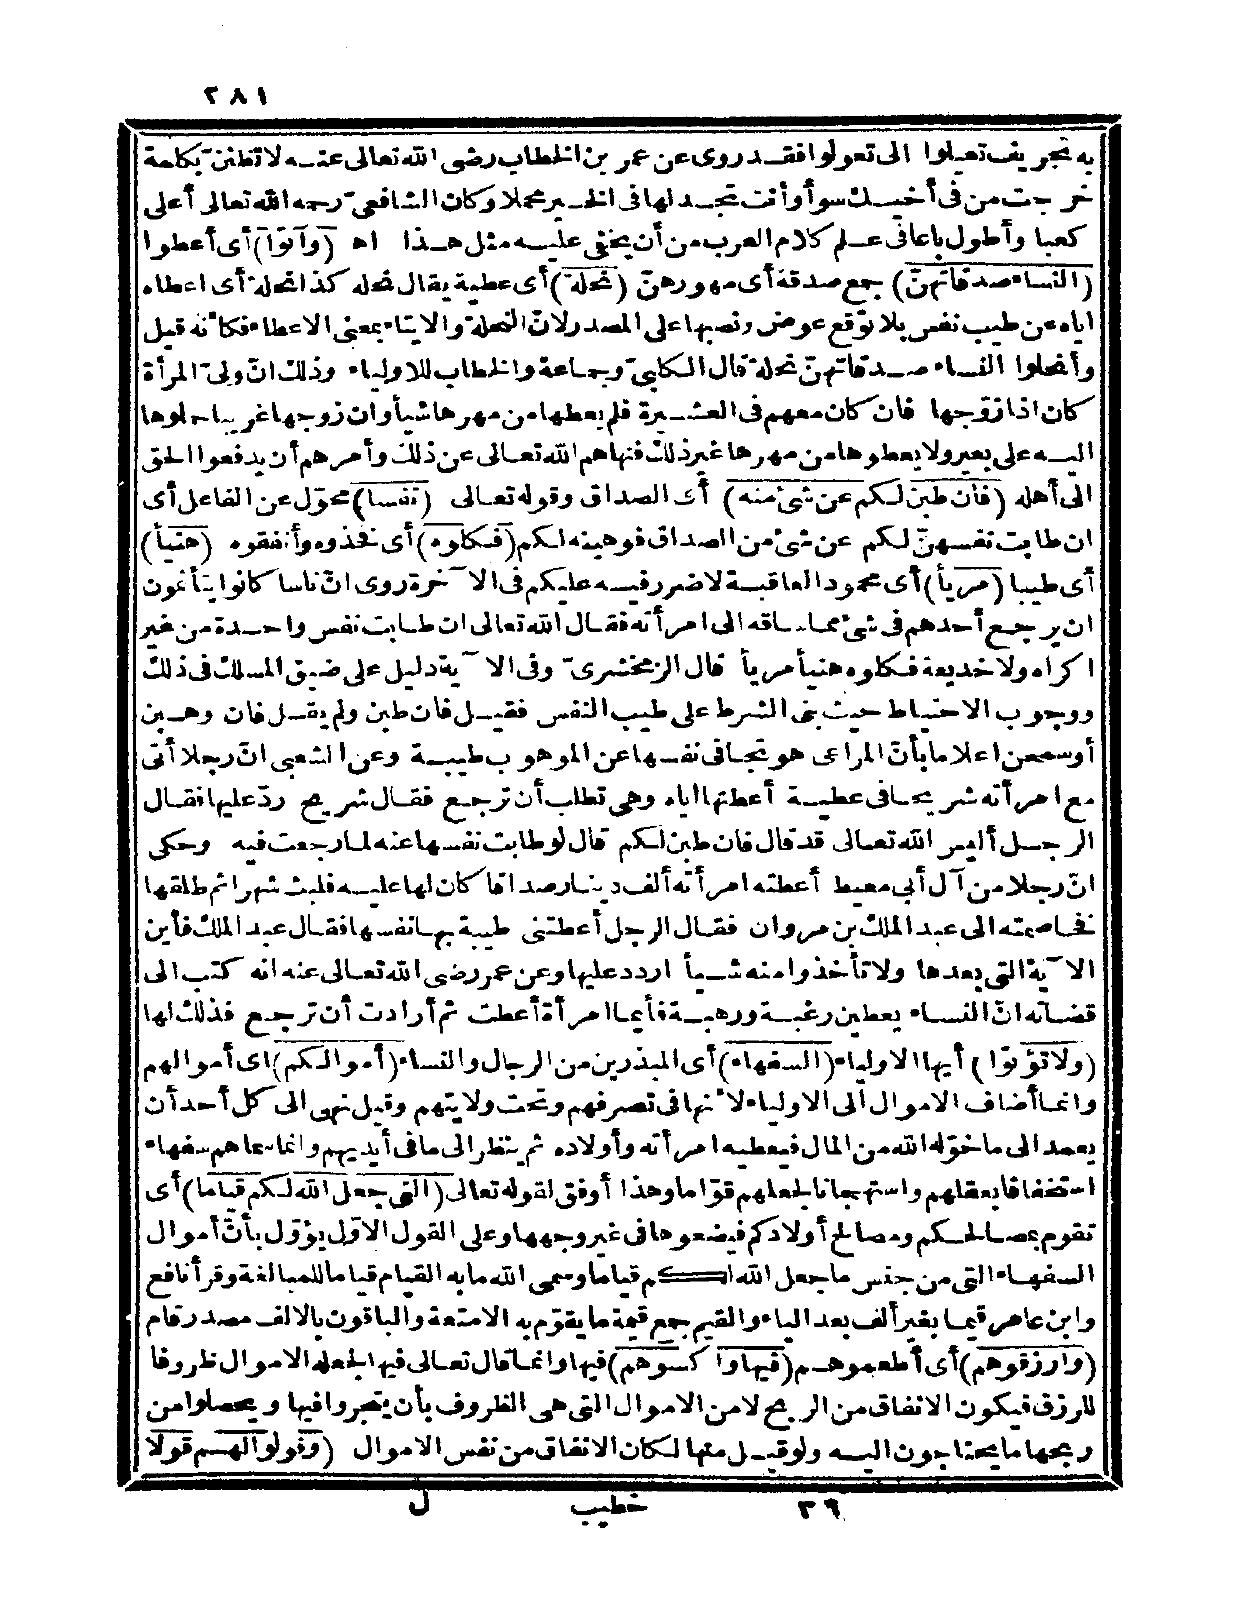 ٢٨١
به تحريف تعيلوا الى تعولوا فقد روى عن عمر بن الخطاب رضى الله تعالى عنه لا تظنن بكلمة
خرجت من فى أخيك سوأ وأنت تجد لها فى الخير محملا وكان الشافعىّ رحمه الله تعالى أعلى
كعبا وأطول باعا فى علم كلام العرب من أن يخفى عليه مثل هذا اهـ (وآتوا) أى أعطوا
(النساء صدقاتهنّ) جمع صدقة أى مهورهنّ (نحلة) أى عطية يقال نحله كذا نحلة أى اعطاه
اياه عن طيب نفس بلا توقع عوض ونصبها على المصدر لانّ النحلة والايتاء بمعنى الاعطاء فكأنه قيل
وأنحلوا النساء صدقاتهنّ نحلة قال الكلبىّ وجماعة والخطاب للاولياء وذلك انّ ولىّ المرأة
كان اذا زوّجها فان كان معهم فى العشيرة فلم يعطها من مهرها شيأ وان زوجها غريبا حملوها
اليه على بعير ولا يعطوها من مهرها غير ذلك فنهاهم الله تعالى عن ذلك وأمرهم أن يدفعوا الحق
الى أهله (فان طبن لكم عن شئ منه) أى الصداق وقوله تعالى (نفسا) محوّل عن الفاعل أى
ان طابت نفسهنّ لكم عن شئ من الصداق فوهبنه لكم (فكلوه) أى فخذوه وأنفقوه (هنيأ)
أى طيبا (مريأ) أى محمود العاقبة لا ضرر فيه عليكم فى الآخرة روى انّ ناسا كانوا يتأثمون
ان يرجع أحدهم فى شئ مما ساقه الى امرأته فقال الله تعالى ان طابت نفس واحدة من غير
اكراه ولا خديعة فكلوه هنيأ مريأ قال الزمخشرىّ وفى الآية دليل على ضيق المسلك فى ذلك
ووجوب الاحتياط حيث بنى الشرط على طيب النفس فقيل فان طبن ولم يقل فان وهبن
أو سمحن اعلاما بأنّ المراعى هو تجافى نفسها عن الموهوب طيبة وعن الشعبى انّ رجلا أتى
مع امرأته شريحا فى عطية أعطتها اياه وهى تطلب أن ترجع فقال شريح ردّ عليها فقال
الرجل أليس الله تعالى قد قال فان طبن لكم قال لو طابت نفسها عنه لما رجعت فيه وحكى
انّ رجلا من آل أبى معيط أعطته امرأته ألف دينار صداقا كان لها عليه فلبث شهرا ثم طلقها
فخاصمته الى عبد الملك بن مروان فقال الرجل أعطتنى طيبة بها نفسها فقال عبد الملك فأين
الآية التى بعدها ولا تأخذوا منه شيأ اردد عليها وعن عمر رضى الله تعالى عنه انه كتب الى
قضاته انّ النساء يعطين رغبة ورهبة فأيما امرأة أعطت ثم أرادت أن ترجع فذلك لها
(ولا تؤتوا) أيها الاولياء (السفهاء) أى المبذرين من الرجال والنساء (أموالكم) اى أموالهم
وانما أضاف الاموال الى الاولياء لانها فى تصرفهم وتحت ولايتهم وقيل نهى الى كل أحد أن
يعمد الى ما خوّله الله من المال فيعطيه امرأته وأولاده ثم ينظر الى ما فى أيديهم وانما سماهم سفهاء
استخفافا بعقلهم واستهجانا لجعلهم قوّاما وهذا أوفق لقوله تعالى (التى جعل الله لكم قياما) أى
تقوم بمصالحكم ومصالح أولادكم فيضعوها فى غير وجهها وعلى القول الاوّل يؤوّل بأنّ أموال
السفهاء التى من جنس ما جعل الله لكم قياما وسمى الله ما به القيام قياما للمبالغة وقرأ نافع
وابن عامر قيما بغير ألف بعد الياء والقيم جمع قيمة ما يقوّم به الامتعة والباقون بالالف مصدر قام
(وارزقوهم) أى أطعموهم (فيها واكسوهم) فيها وانما قال تعالى فيها لجعله الاموال ظروفا
للرزق فيكون الانفاق من الربح لا من الاموال التى هى الظروف بأن يتجروا فيها ويحصلوا من
ربحها ما يحتاجون اليه ولو قيل منها لكان الانفاق من نفس الاموال (وقولوا لهم قولا
٣٦ خطيب ل